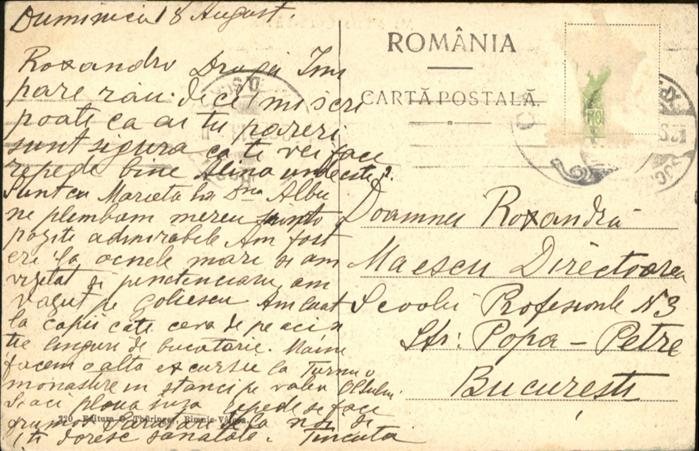 Duminica 18 August.
Roxandro Dragă Imi
pare rău. dece imi scri
poate ca ai tu pareri
sunt sigura ca te vei face
repede bine Alina unde este?
Sunt cu Marieta la Dna Albu
ne plimbam mereu sunt o
poziti admirabele Am fost
eri la ocnele mari si am
vizitat si penitenciaru am
vazut pe Golescu Am luat
la copii cate ceva de pe aci
linguri de bucatarie. Maine
facem o alta excursie la Turnu o
monastire in stanci pe valea Oltului.
Si aci ploua insa repede se face
frumos
iti doresc sanatate. Tincuta
ROMÂNIA
CARTĂ POSTALĂ.
Doamnei Roxandra
Maescu Directoarea
Scoalei Profesionale N 3
Str: Popa-Petre
București
320. Editura